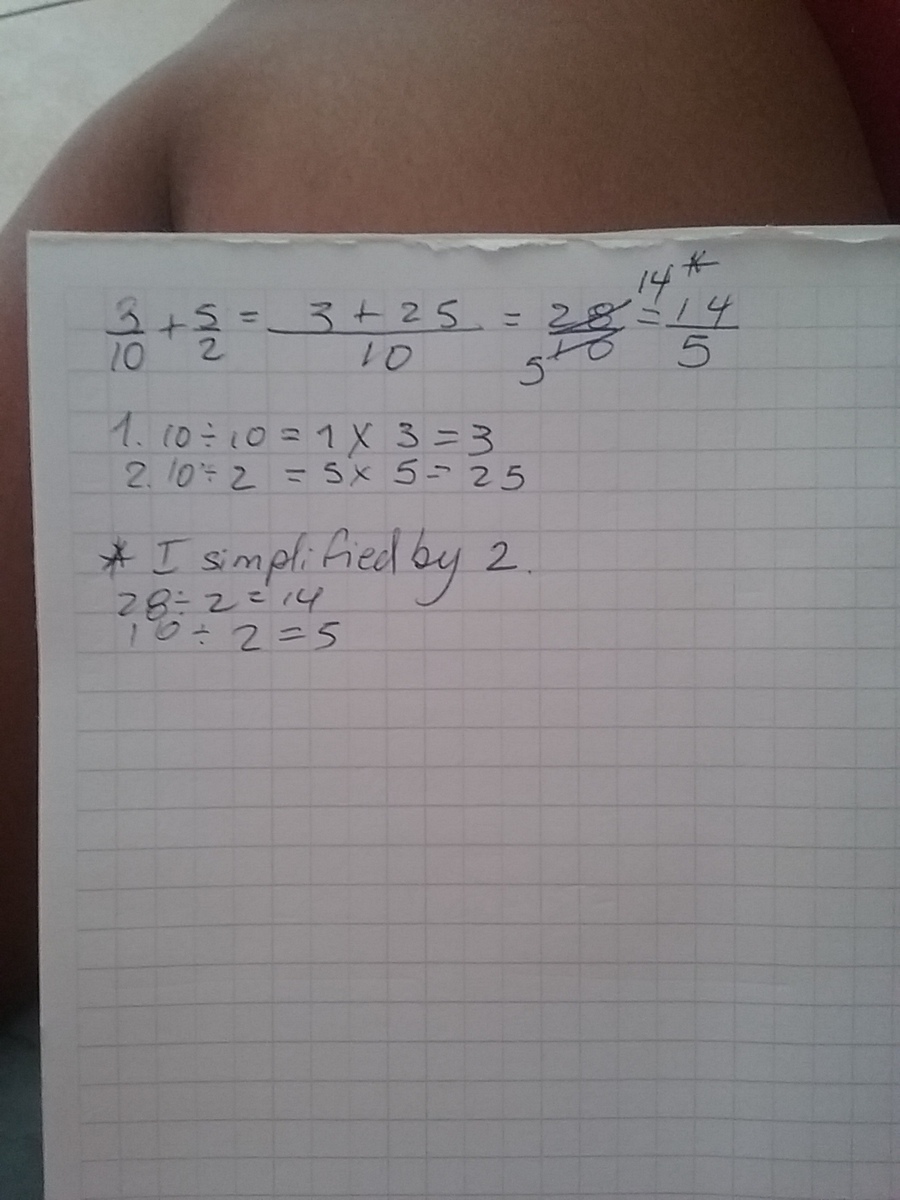 3/10 + 5/2 = 3 + 25/10 = 28/10 14* 5 = 14/5
1. 10 ÷ 10 = 1 X 3 = 3
2. 10 ÷ 2 = 5 x 5 = 25
* I simplified by 2.
28 ÷ 2 = 14
10 ÷ 2 = 5